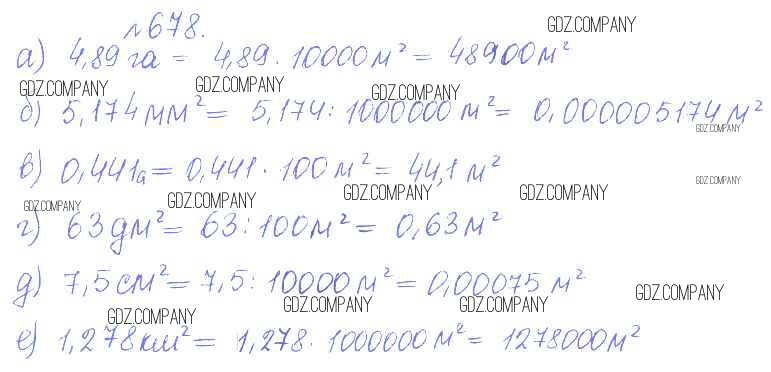 №678.
GDZ.COMPANY
а) 4,89 га = 4,89 · 10000 м² = 48900 м²
GDZ.COMPANY GDZ.COMPANY GDZ.COMPANY
б) 5,174 мм² = 5,174 : 1000000 м² = 0,000005174 м²
GDZ.COMPANY
в) 0,441а = 0,441 · 100 м² = 44,1 м²
GDZ.COMPANY
GDZ.COMPANY GDZ.COMPANY GDZ.COMPANY GDZ.COMPANY
г) 63 дм² = 63 : 100 м² = 0,63 м²
д) 7,5 см² = 7,5 : 10000 м² = 0,00075 м²
GDZ.COMPANY GDZ.COMPANY GDZ.COMPANY GDZ.COMPANY
е) 1,278 км² = 1,278 · 1000000 м² = 1278000 м²